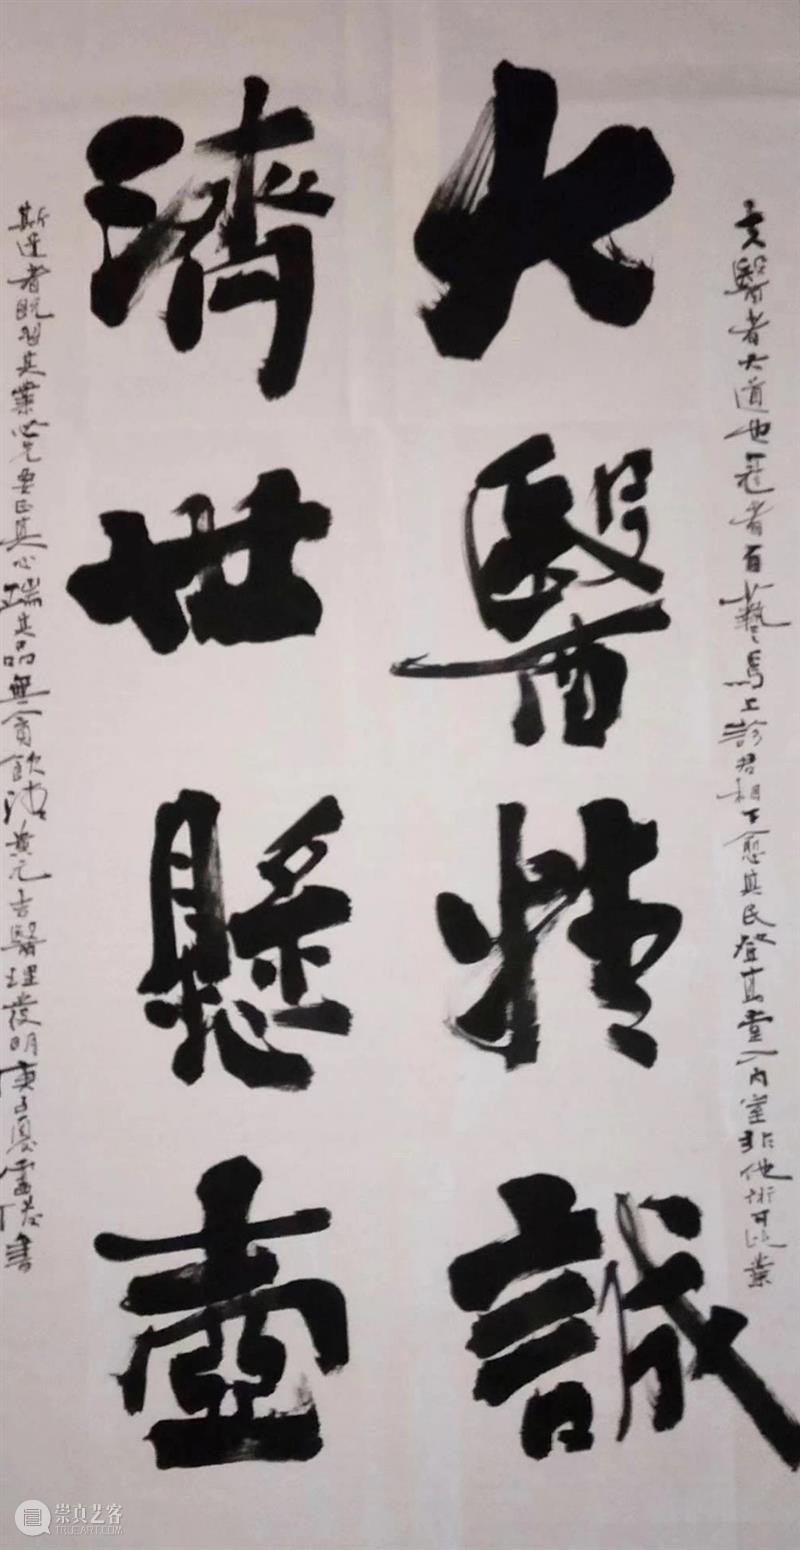 夫醫者大道也冠者百藝焉上診君相下愈其民登其堂入內室非他術可比業
大醫精誠
濟世懸壺
斯道者既習其業必先要正其心端其品無貪飲黃元吉醫理發明庚子夏書
崇真艺客
TRUEART.COM